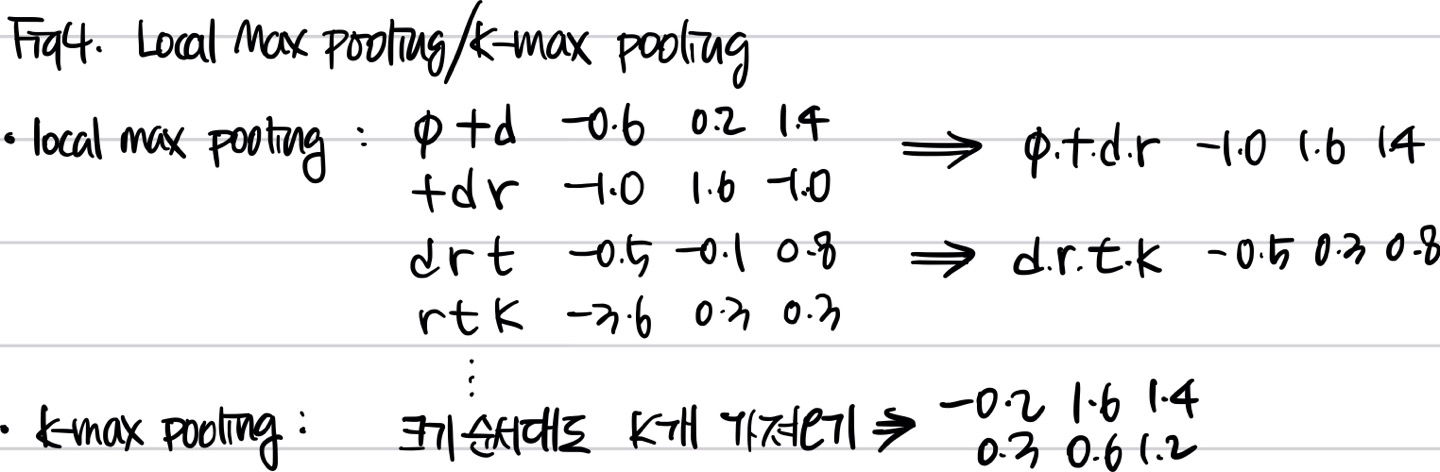 Fig4. Local Max pooling/k-max pooling
• local max pooling : ϕ t d -0.6 0.2 1.4 ⇒ ϕ.t.d.r -1.0 1.6 1.4
t d r -1.0 1.6 -1.0
d r t -0.5 -0.1 0.8 ⇒ d.r.t.k -0.5 0.3 0.8
r t k -3.6 0.3 0.3
⋮
• k-max pooling : 크기 순서대로 K개 가져오기 ⇒ -0.2 1.6 1.4
0.3 0.6 1.2